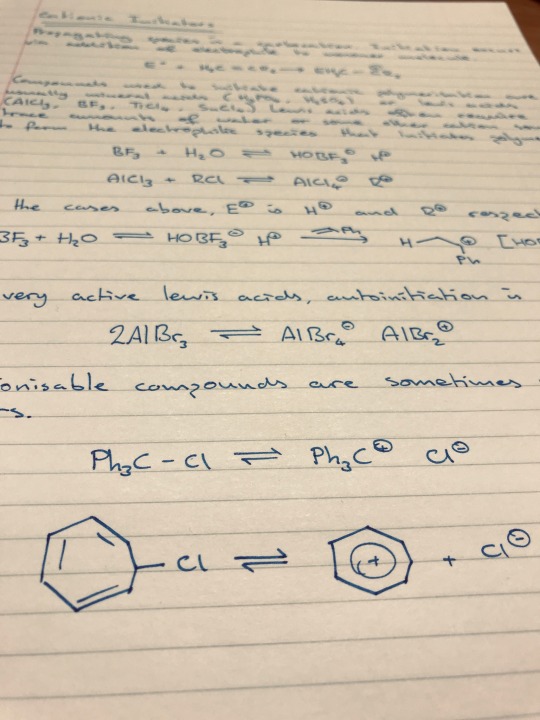 Cationic Initiators
Propagating species is a carbocation. Initiation occurs
via addition of electrophile to monomer molecule.
E⁺ + H₂C = CR₂ → EH₂C –
Compounds used to initiate cationic polymerisation are
usually mineral acids (H₃PO₄, H₂SO₄) or lewis acids
(AlCl₃, BF₃, TiCl₄, SnCl₄) Lewis acids often require
trace amounts of water or some other cation
to form the electrophilic species that initiates
BF₃ + H₂O ⇌ HOBF₃⊖ H⊕
AlCl₃ + RCl ⇌ AlCl₄⊖ R⊕
the cases above, E⊕ is H⊕ and R⊕
BF₃ + H₂O ⇌ HOBF₃⊖ H⊕ → Ph H ⊕ Ph
very active lewis acids, autoinitiation is
2AlBr₃ ⇌ AlBr₄⊖ AlBr₂⊕
onisable compounds are sometimes
rs.
Ph₃C – Cl ⇌ Ph₃C⊕ Cl⊖
Cl ⇌ + + Cl⊖